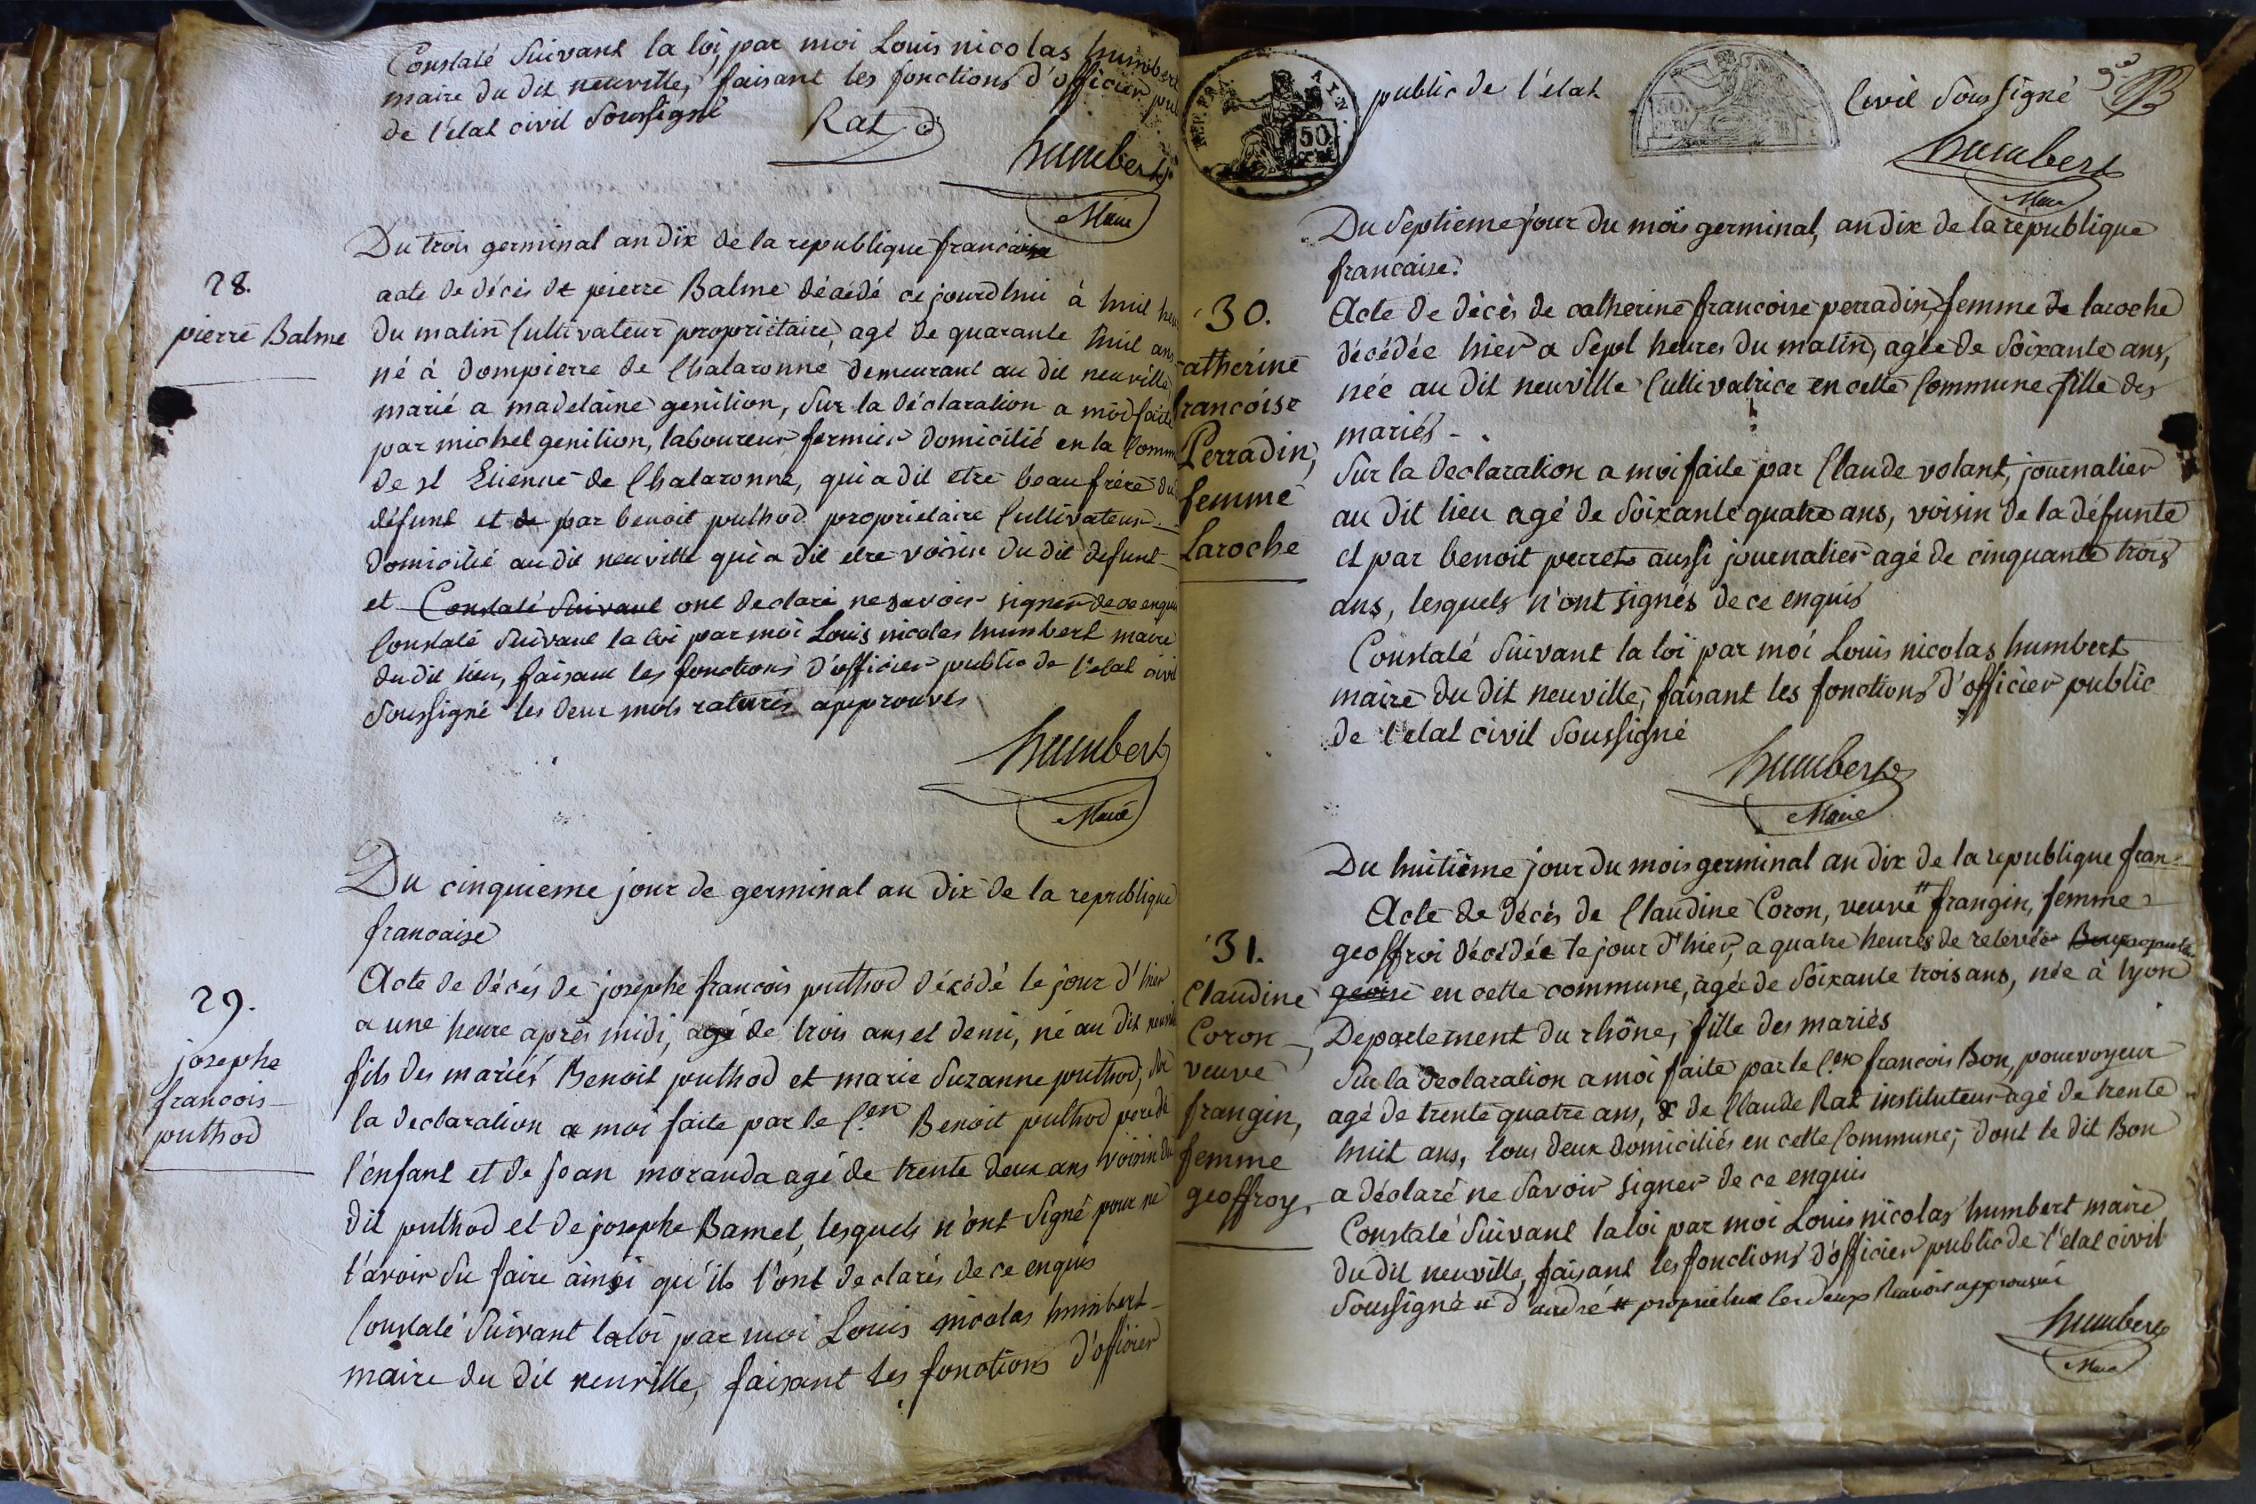 Constaté Suivant la loi, par moi Louis nicolas humbert
maire du dit neuville, faisant les fonctions d'officier pub
de l'état civil Soussigné
Rat
humbert
Maire
Du trois germinal an Dix de la republique francaise
28.
pierre Balme
acte de décès de pierre Balme décédé ce jourdhui à huit heu
du matin Cultivateur propriétaire, agé de quarante huit ans
né à dompierre de Chalaronne demeurant au dit neuville
marié a madelaine genition, Sur la déclaration a moi faite
par michel genition, laboureur, fermier domicilié en la Comm
de st Etienne de Chalaronne, qui a dit etre beaufrère du
défunt et de par benoit puthod propriétaire Cultivateur
domicilié au dit neuville qui a dit etre voisin du dit defunt
et Constaté Suivant ont declaré ne savoir signer de ce enquis
Constaté Suivant la loi par moi Louis nicolas humbert maire
du dit lieu, faisant les fonctions d'officier public de l'etat civil
Soussigné les deux mots raturés approuvés
humbert
Maire
Du cinquieme jour de germinal an dix de la republique
francaise
29.
josephe
francois
puthod
Acte de décés de josephe francois puthod décédé le jour d'hier
a une heure après midi, agé de trois ans et demi, né au dit neuville
fils des mariés Benoit puthod et marie Suzanne puthod, Sur
la declaration a moi faite par le C.en Benoit puthod pere de
l'enfant et de joan moranda agé de trente deux ans voisin du
dit puthod et de josephe Bamet, lesquels n'ont Signé pour ne
l'avoir Su faire ainsi qu'ils l'ont declarés de ce enquis
Constaté Suivant la loi par moi Louis nicolas humbert
maire du dit neuville, faisant les fonctions d'officier
REP. FRA.
AIN.
50
cent.
public de l'état
Civil Soussigné
humbert
Maire
Du Septieme jour du mois germinal, an dix de la république
francaise.
30.
Catherine
francoise
Perradin,
femme
Laroche
Acte de décès de catherine francoise perradin, femme de laroche
décédée hier a Sept heures du matin, agée de Soixante ans,
née au dit neuville Cultivatrice en cette Commune fille des
mariés
Sur la declaration a moi faite par Claude volant, journalier
au dit lieu agé de Soixante quatre ans, voisin de la défunte
et par benoit perret aussi journalier agé de cinquante trois
ans, lesquels n'ont signés de ce enquis
Constaté Suivant la loi par moi Louis nicolas humbert
maire du dit neuville, faisant les fonctions d'officier public
de l'etat civil Soussigné
humbert
Maire
Du huitième jour du mois germinal an dix de la republique fran
31.
Claudine
Coron,
veuve
frangin,
femme
geoffroy,
Acte de décés de Claudine Coron, veuve # frangin, femme
geoffroi décédée le jour d'hier, a quatre heures de relevée
en cette commune, agée de Soixante trois ans, née à lyon
Departement du rhône, fille des mariés
Sur la declaration a moi faite par le C.en francois Bon, pourvoyeur
agé de trente quatre ans, & de Claude Rat instituteur agé de trente
huit ans, tous deux domiciliés en cette Commune; dont le dit Bon
a déclaré ne Savoir signer de ce enquis
Constaté Suivant la loi par moi Louis nicolas humbert maire
du dit neuville, faisant les fonctions d'officier public de l'état civil
Soussigné # d'andré # les deux Renvois approuvé
humbert
Maire